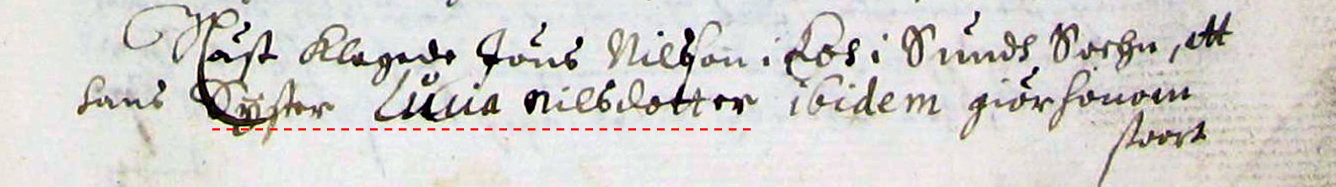 Näst klagede Jöns Nilsson i Kos i Sunds Sochn, att
hans Syster Lucia Nilsdotter ibidem giör honom
stoort